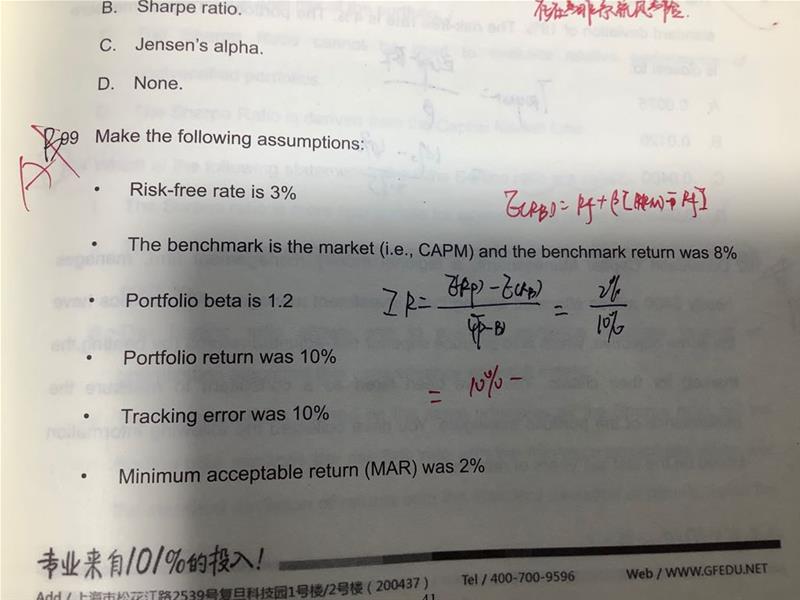 B. Sharpe ratio.
C. Jensen's alpha.
D. None.
99 Make the following assumptions:
• Risk-free rate is 3%
E(RB) = Rf + β[
• The benchmark is the market (i.e., CAPM) and the benchmark return was 8%
• Portfolio beta is 1.2
IR = E(RP) - E(RB) = 2%
10%
• Portfolio return was 10%
= 10% -
• Tracking error was 10%
• Minimum acceptable return (MAR) was 2%
专业来自101%的投入!
Add / 上海市松花江路2539号复旦科技园1号楼/2号楼 ( 200437 ) Tel / 400-700-9596 Web / WWW.GFEDU.NET
41